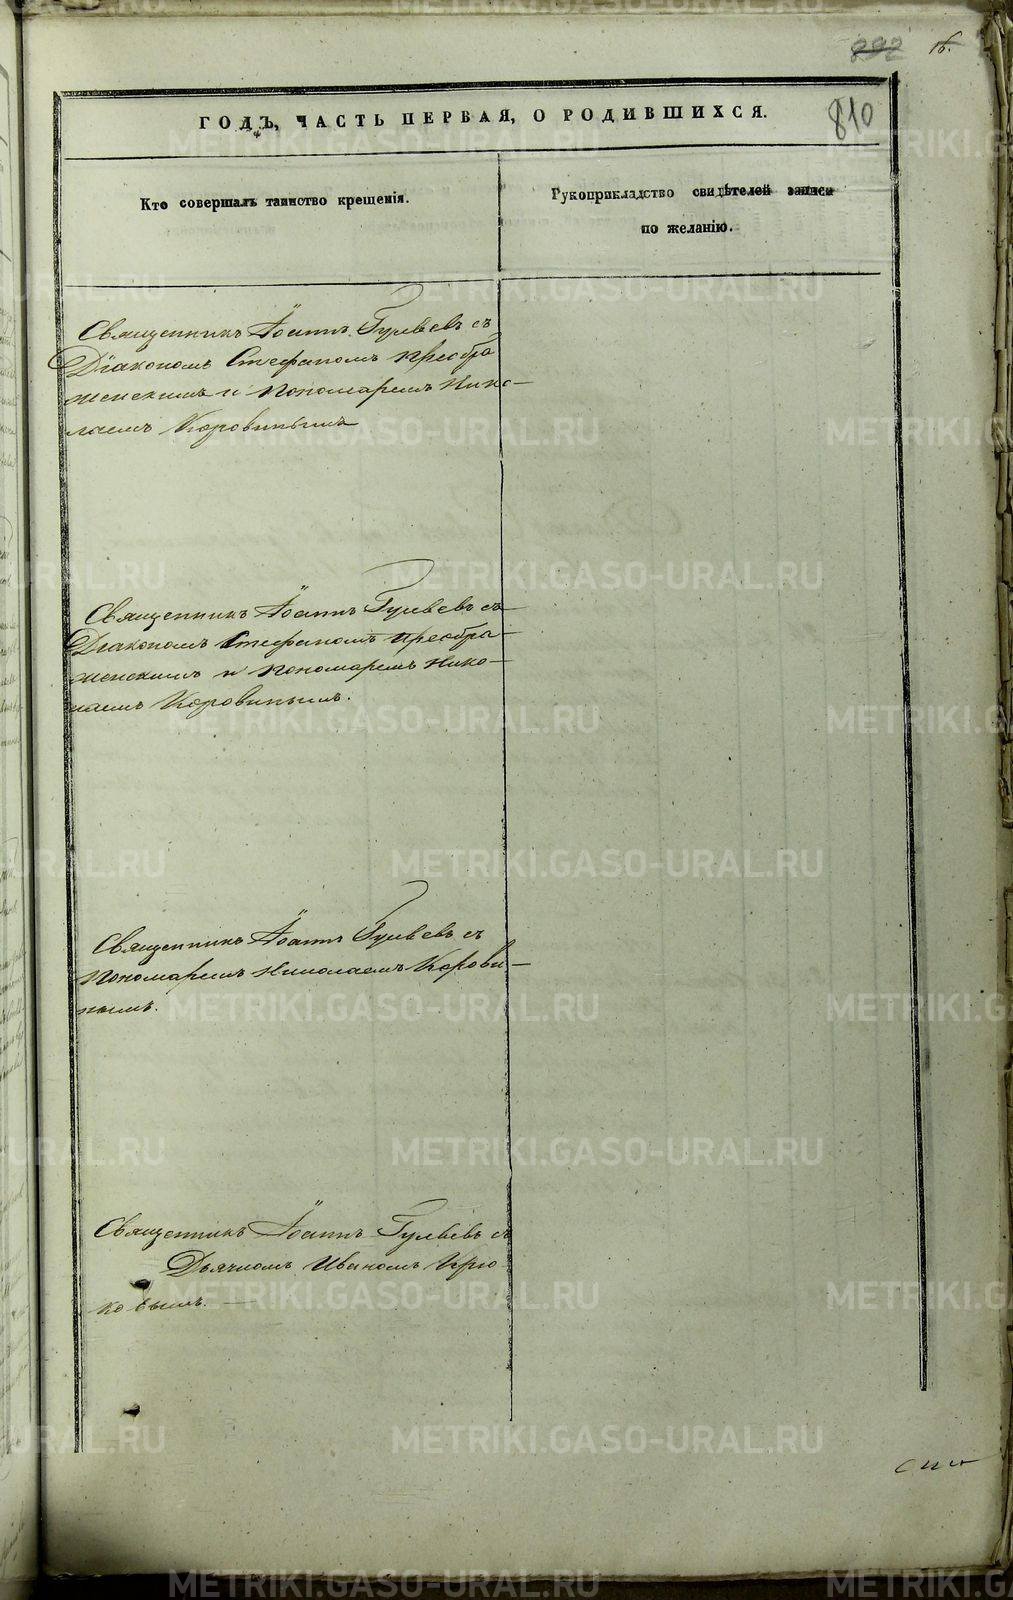 892 16.
810
ГОДЪ, ЧАСТЬ ПЕРВАЯ, О РОДИВШИХСЯ.
Кто совершалъ таинство крещенія.
Рукоприкладство свидѣтелей записи
по желанію.
Священникъ Іоаннъ Гуляевъ съ
Діакономъ Стефаномъ Преобра
женскимъ и Пономаремъ Нико-
лаемъ Коровинымъ
Священникъ Іоаннъ Гуляевъ съ
Діакономъ Стефаномъ Преобра-
женскимъ и Пономаремъ Нико-
лаемъ Коровинымъ.
Священникъ Іоаннъ Гуляевъ съ
Пономаремъ Николаемъ Корови-
нымъ.
Священникъ Іоаннъ Гуляевъ съ
Дьячкомъ Иваномъ Крю
ковымъ. —
METRIKI.GASO-URAL.RU